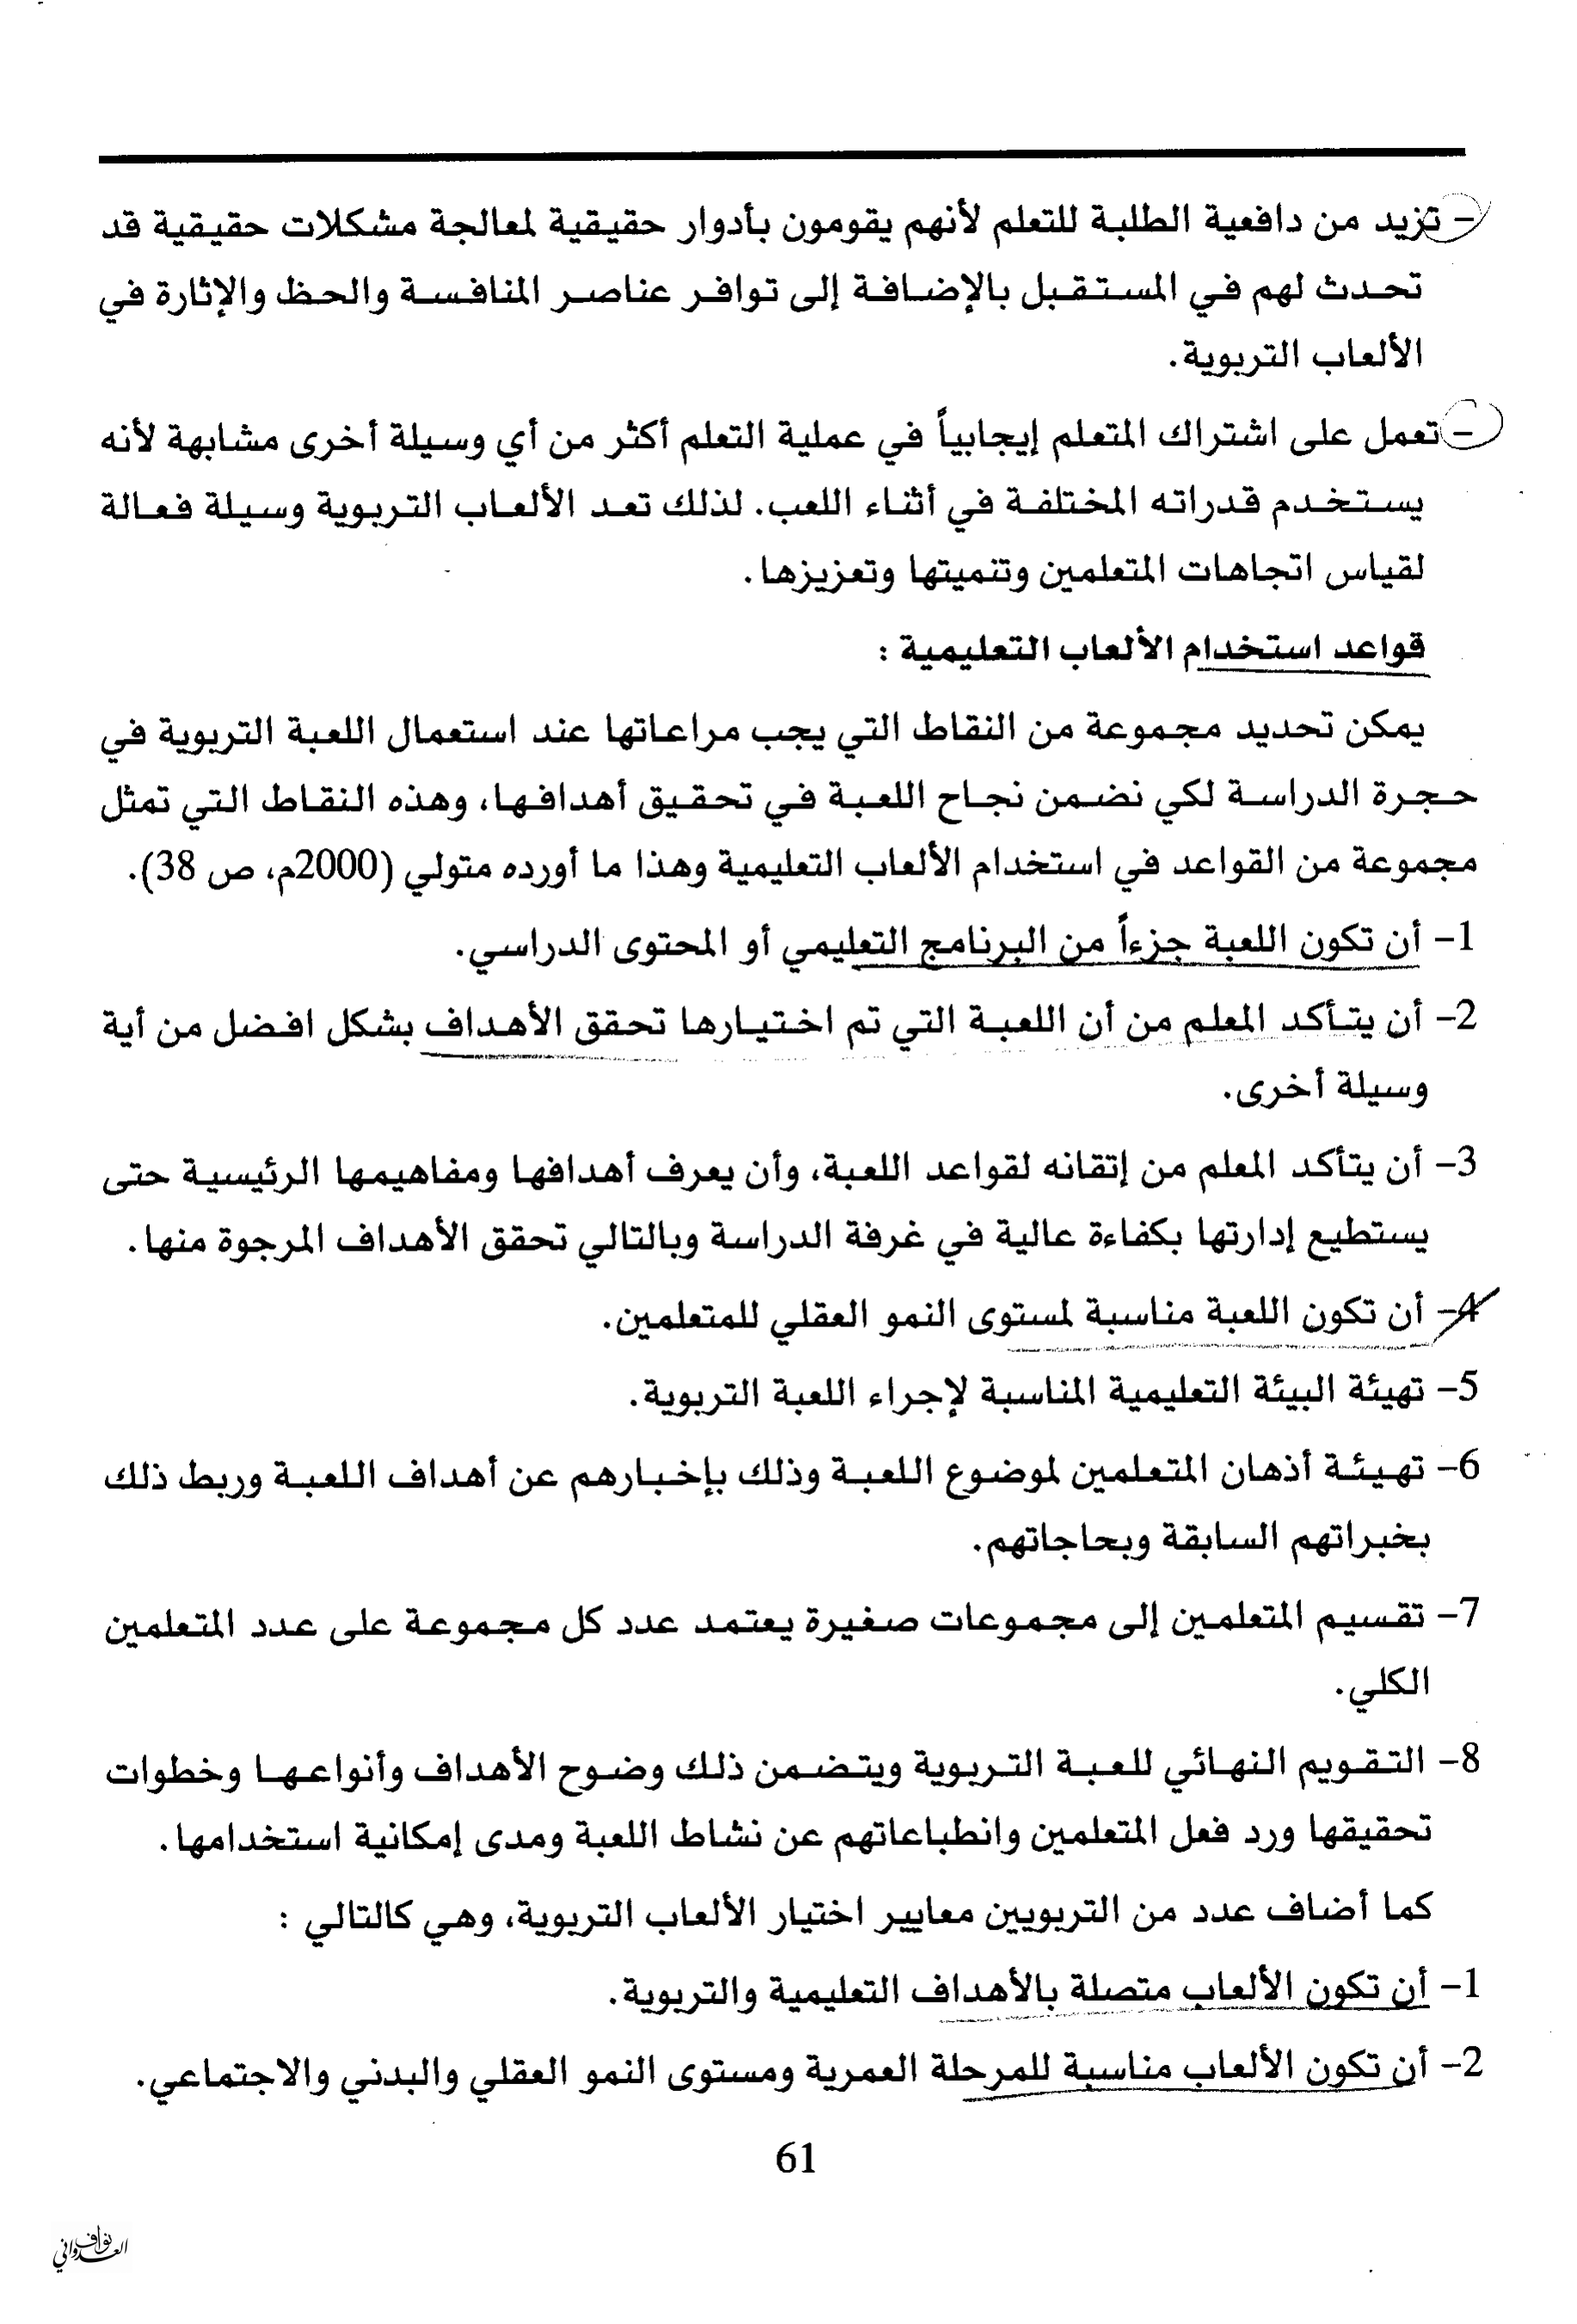 - تزيد من دافعية الطلبة للتعلم لأنهم يقومون بأدوار حقيقية لمعالجة مشكلات حقيقية قد
تحدث لهم في المستقبل بالإضافة إلى توافر عناصر المنافسة والحظ والإثارة في
الألعاب التربوية.
- تعمل على اشتراك المتعلم إيجابياً في عملية التعلم أكثر من أي وسيلة أخرى مشابهة لأنه
يستخدم قدراته المختلفة في أثناء اللعب. لذلك تعد الألعاب التربوية وسيلة فعالة
لقياس اتجاهات المتعلمين وتنميتها وتعزيزها.
قواعد استخدام الألعاب التعليمية :
يمكن تحديد مجموعة من النقاط التي يجب مراعاتها عند استعمال اللعبة التربوية في
حجرة الدراسة لكي نضمن نجاح اللعبة في تحقيق أهدافها، وهذه النقاط التي تمثل
مجموعة من القواعد في استخدام الألعاب التعليمية وهذا ما أورده متولي (2000م، ص 38).
1- أن تكون اللعبة جزءاً من البرنامج التعليمي أو المحتوى الدراسي.
2- أن يتأكد المعلم من أن اللعبة التي تم اختيارها تحقق الأهداف بشكل افضل من أية
وسيلة أخرى.
3- أن يتأكد المعلم من إتقانه لقواعد اللعبة، وأن يعرف أهدافها ومفاهيمها الرئيسية حتى
يستطيع إدارتها بكفاءة عالية في غرفة الدراسة وبالتالي تحقق الأهداف المرجوة منها.
4- أن تكون اللعبة مناسبة لمستوى النمو العقلي للمتعلمين.
5- تهيئة البيئة التعليمية المناسبة لإجراء اللعبة التربوية.
6- تهيئة أذهان المتعلمين لموضوع اللعبة وذلك بإخبارهم عن أهداف اللعبة وربط ذلك
بخبراتهم السابقة وبحاجاتهم.
7- تقسيم المتعلمين إلى مجموعات صغيرة يعتمد عدد كل مجموعة على عدد المتعلمين
الكلي.
8- التقويم النهائي للعبة التربوية ويتضمن ذلك وضوح الأهداف وأنواعها وخطوات
تحقيقها ورد فعل المتعلمين وانطباعاتهم عن نشاط اللعبة ومدى إمكانية استخدامها.
كما أضاف عدد من التربويين معايير اختيار الألعاب التربوية، وهي كالتالي :
1- أن تكون الألعاب متصلة بالأهداف التعليمية والتربوية.
2- أن تكون الألعاب مناسبة للمرحلة العمرية ومستوى النمو العقلي والبدني والاجتماعي.
61
نواف
العدواني